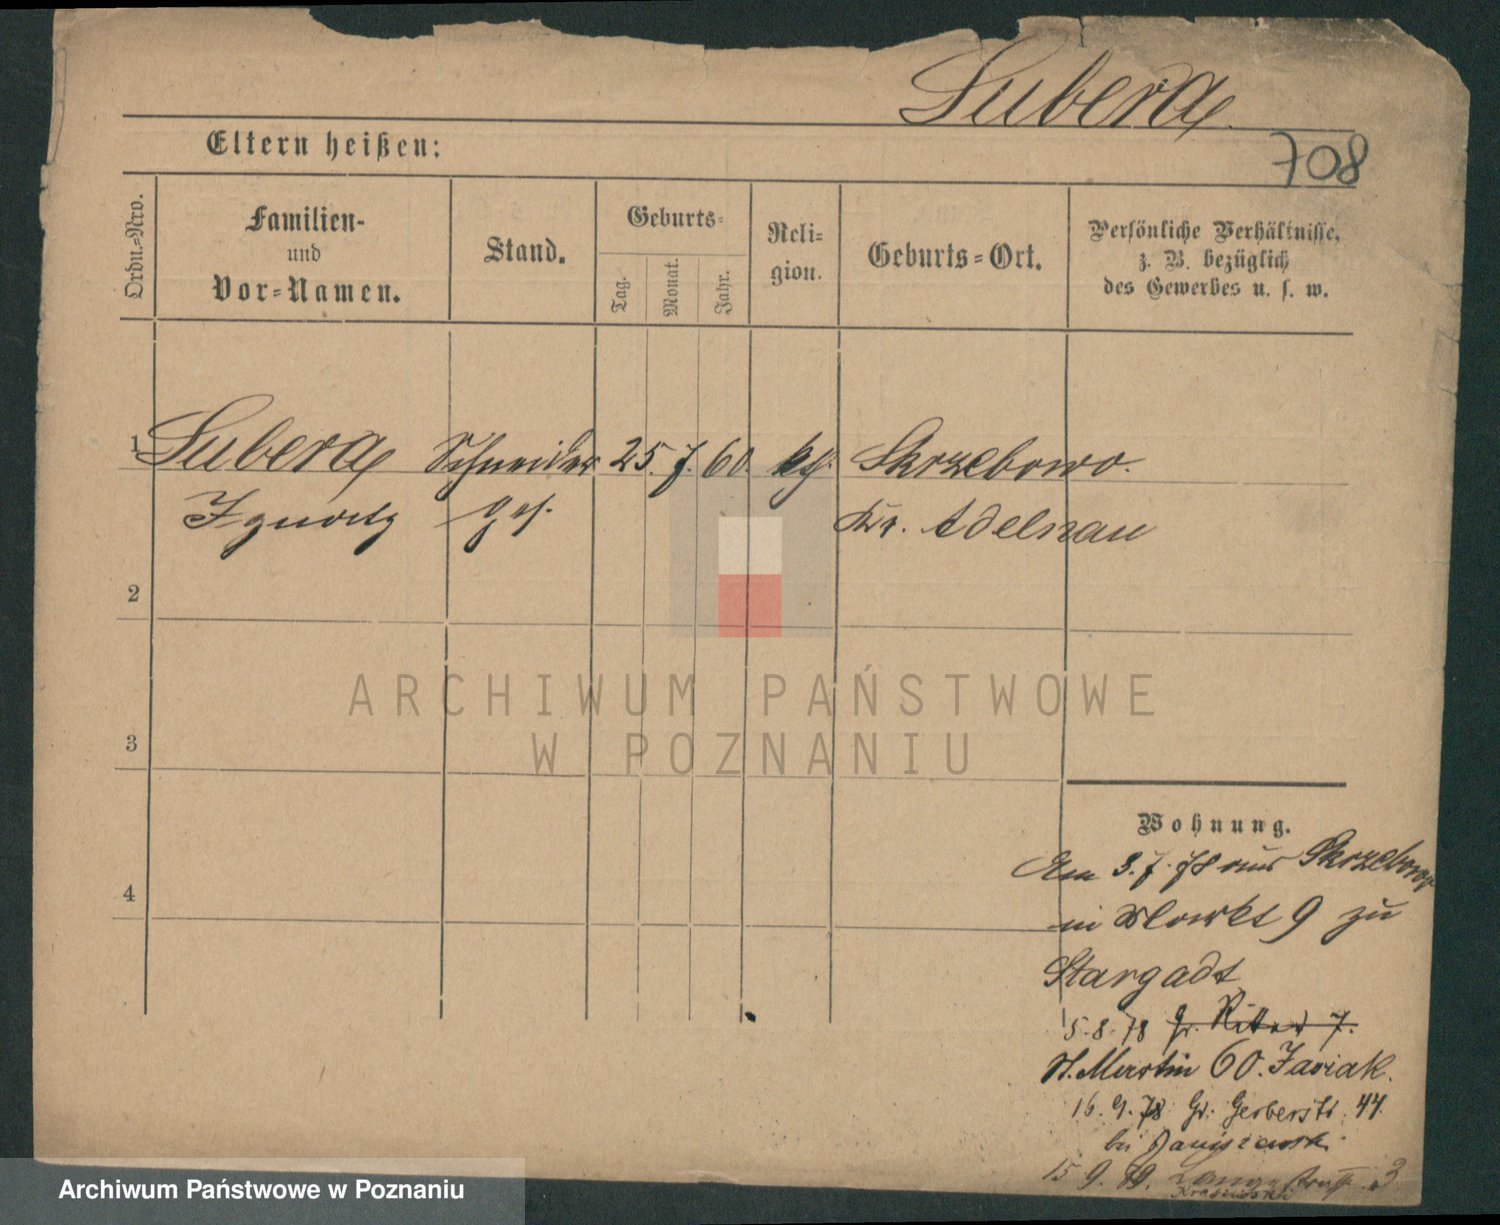 Lubera
Eltern heißen:
708
Ordn.-Nro.
Familien-
und
Vor-Namen.
Stand.
Geburts-
Tag.
Monat.
Jahr.
Reli-
gion.
Geburts-Ort.
Persönliche Verhältnisse,
z. B. bezüglich
des Gewerbes u. s. w.
1 Lubera Schneider 25. 7. 60 kth. Skrzebowo.
Ignatz ges. Kr. Adelnau
2
3
4
ARCHIWUM PAŃSTWOWE
W POZNANIU
Wohnung.
Am 3. 7. 78 aus Skrzebowo
Markt 9 zu
Stargadt
5. 8. 78 Gr. Ritter 7.
St. Martin 60. Jasiak.
16. 9. 78 Gr. Gerberstr. 44.
bei
15 9. 79. Langestraße 3
Archiwum Państwowe w Poznaniu